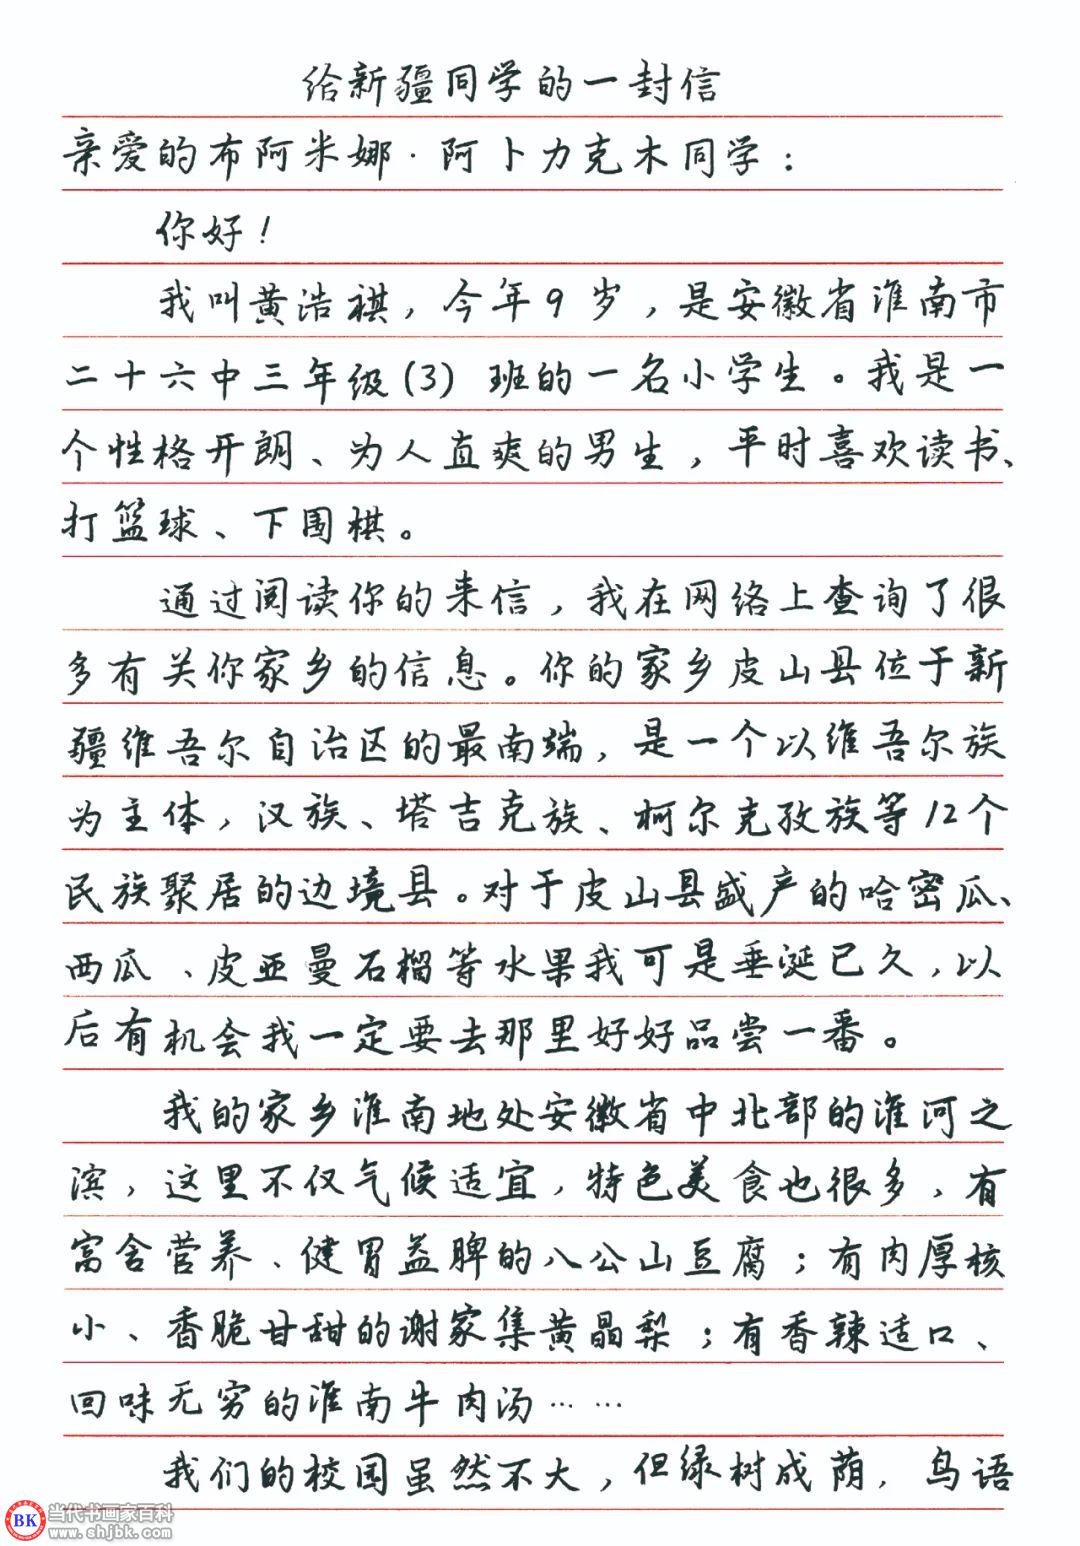 给新疆同学的一封信
亲爱的布阿米娜·阿卜力克木同学：
你好！
我叫黄浩祺，今年9岁，是安徽省淮南市
二十六中三年级(3)班的一名小学生。我是一
个性格开朗、为人直爽的男生，平时喜欢读书、
打篮球、下围棋。
通过阅读你的来信，我在网络上查询了很
多有关你家乡的信息。你的家乡皮山县位于新
疆维吾尔自治区的最南端，是一个以维吾尔族
为主体，汉族、塔吉克族、柯尔克孜族等12个
民族聚居的边境县。对于皮山县盛产的哈密瓜、
西瓜、皮亚曼石榴等水果我可是垂涎已久，以
后有机会我一定要去那里好好品尝一番。
我的家乡淮南地处安徽省中北部的淮河之
滨，这里不仅气候适宜，特色美食也很多，有
富含营养、健胃益脾的八公山豆腐；有肉厚核
小、香脆甘甜的谢家集黄晶梨；有香辣适口、
回味无穷的淮南牛肉汤……
我们的校园虽然不大，但绿树成荫，鸟语
BK 当代书画家百科
www.shjbk.com